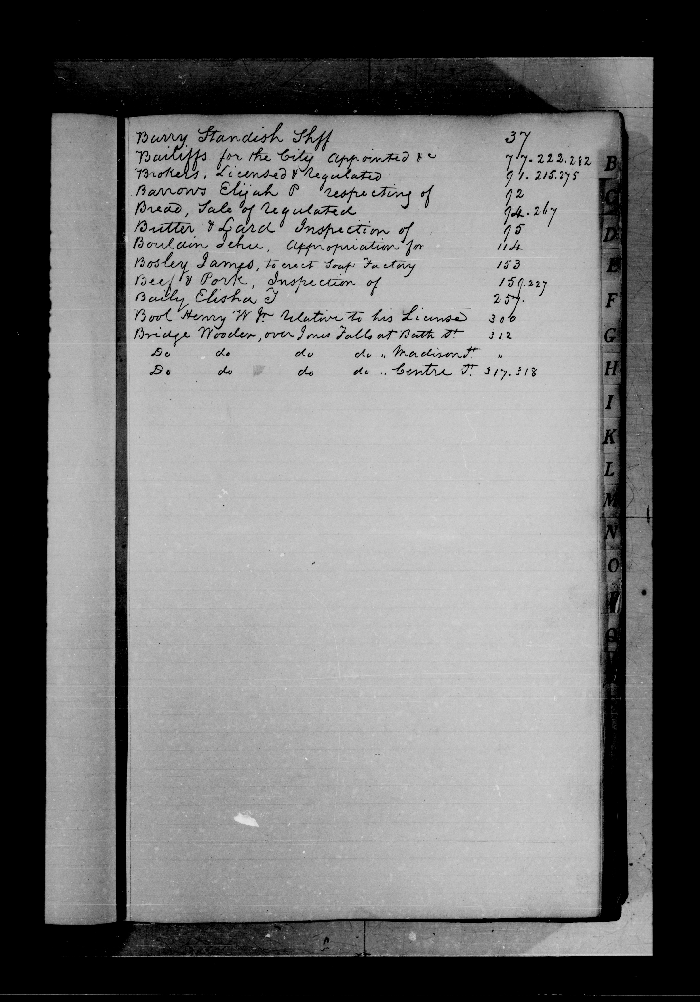 Barry Standish Shff 37
Bailiffs for the City appointed &c 77.222.282
Brokers, Licensed & Regulated 91.215.275
Barrows Elijah P respecting of 92
Bread, Sale of regulated 94.267
Butter & Lard Inspection of 95
Bouldin Jehu, Appropriation for 114
Bosley James, to erect Soap Factory 153
Beef & Pork, Inspection of 159.227
Baily Elisha T 257.
Bool Henry W Jr relative to his License 300
Bridge Wooden, over Jones Falls at Bath St 312
Do do do do " Madison St "
Do do do do " Centre St 317.318
B
C
D
E
F
G
H
I
K
L
M
N
O
Q